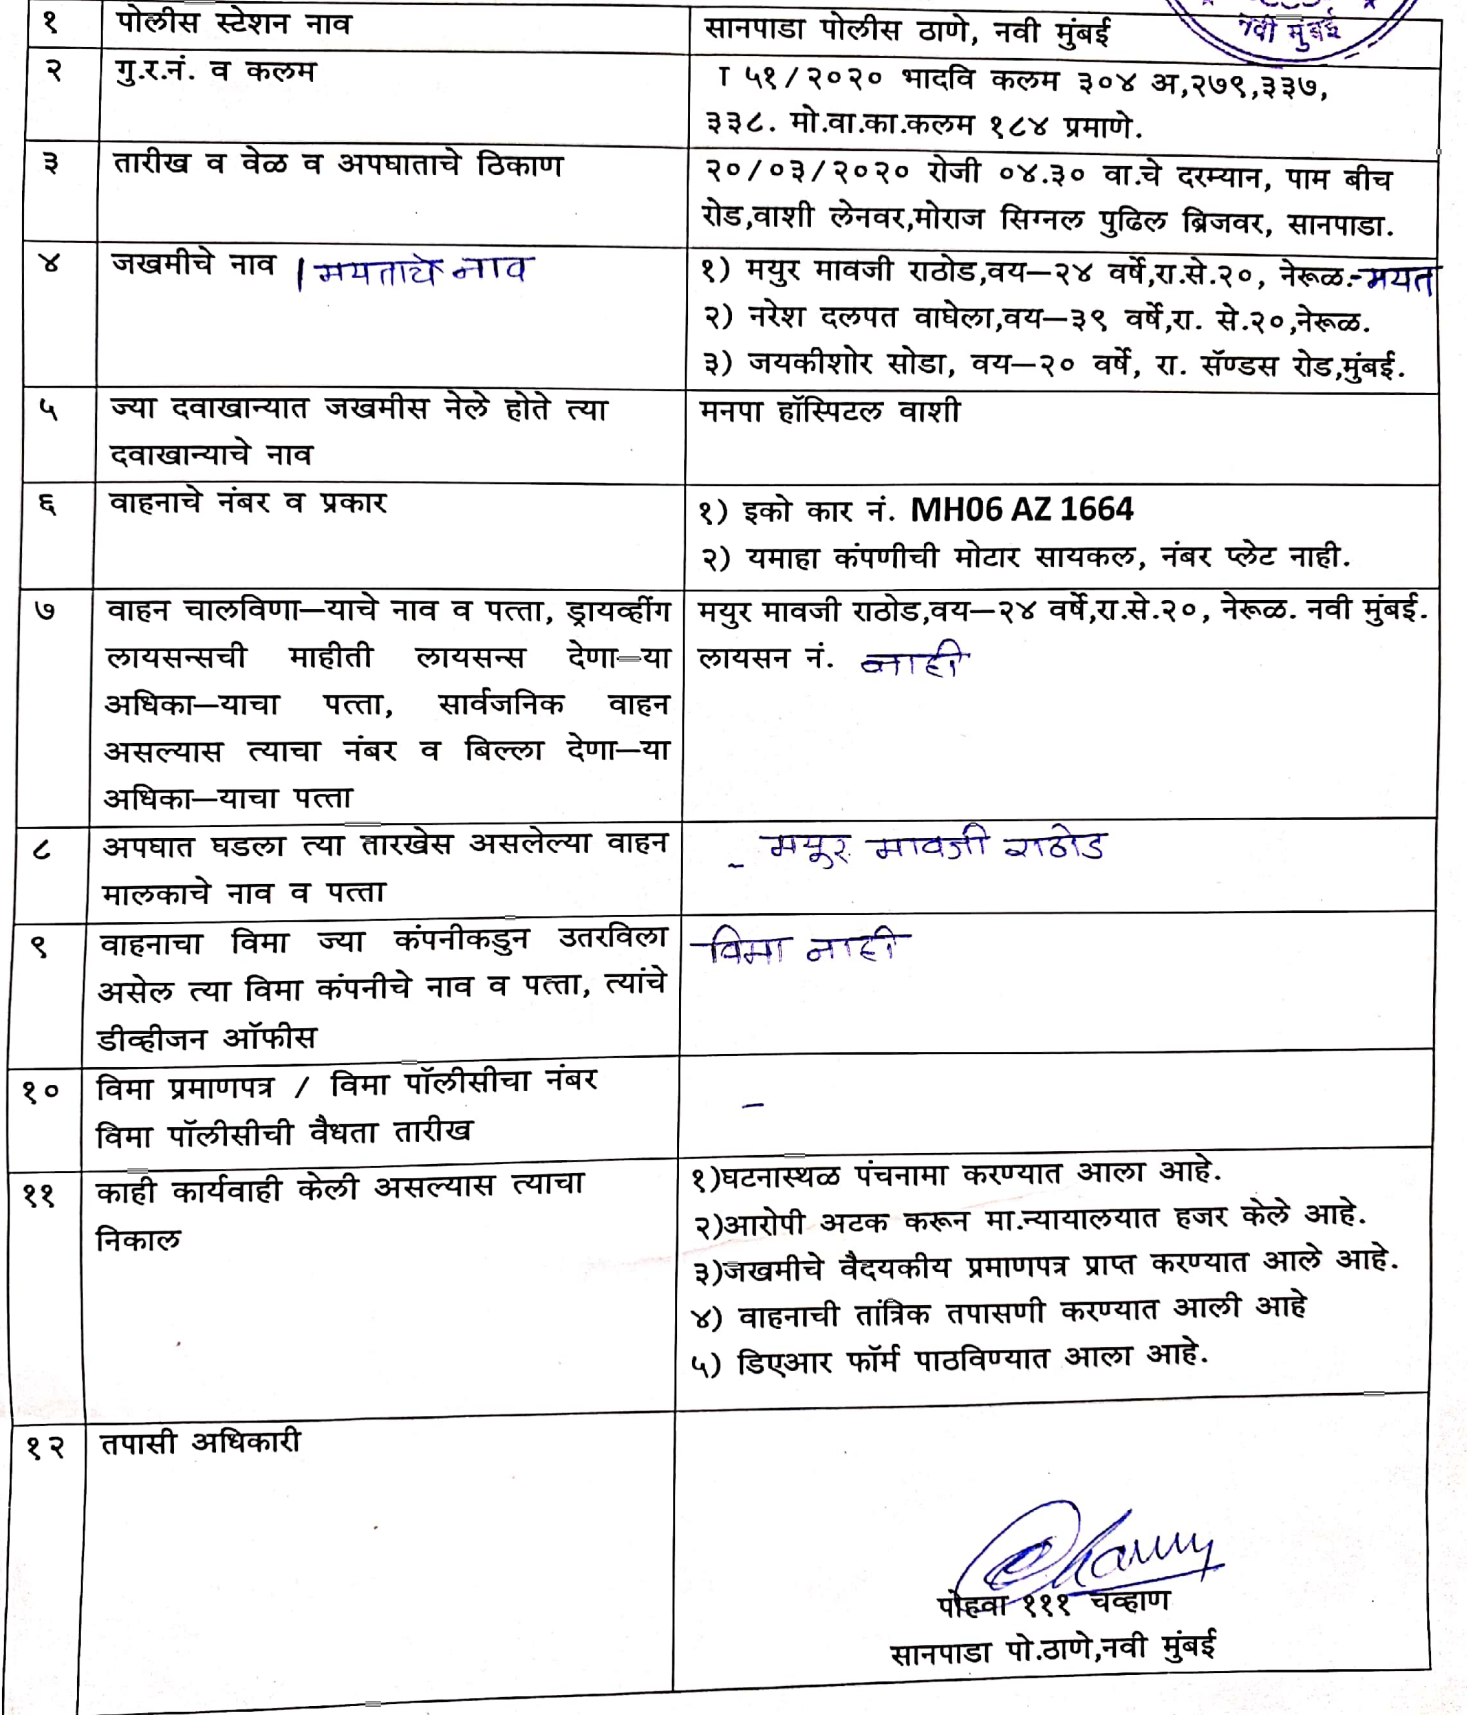 नवी मुंबई
१ पोलीस स्टेशन नाव सानपाडा पोलीस ठाणे, नवी मुंबई
२ गु.र.नं. व कलम I ५१/२०२० भादवि कलम ३०४ अ,२७९,३३७,
३३८. मो.वा.का.कलम १८४ प्रमाणे.
३ तारीख व वेळ व अपघाताचे ठिकाण २०/०३/२०२० रोजी ०४.३० वा.चे दरम्यान, पाम बीच
रोड,वाशी लेनवर,मोराज सिग्नल पुढिल ब्रिजवर, सानपाडा.
४ जखमीचे नाव / मयताचे नाव १) मयुर मावजी राठोड,वय—२४ वर्षे,रा.से.२०, नेरूळ.-मयत
२) नरेश दलपत वाघेला,वय—३९ वर्षे,रा. से.२०,नेरूळ.
३) जयकीशोर सोडा, वय—२० वर्षे, रा. सॅण्डस रोड,मुंबई.
५ ज्या दवाखान्यात जखमीस नेले होते त्या मनपा हॉस्पिटल वाशी
दवाखान्याचे नाव
६ वाहनाचे नंबर व प्रकार १) इको कार नं. MH06 AZ 1664
२) यमाहा कंपणीची मोटार सायकल, नंबर प्लेट नाही.
७ वाहन चालविणा—याचे नाव व पत्ता, ड्रायव्हींग मयुर मावजी राठोड,वय—२४ वर्षे,रा.से.२०, नेरूळ. नवी मुंबई.
लायसन्सची माहीती लायसन्स देणा—या लायसन नं. नाही
अधिका—याचा पत्ता, सार्वजनिक वाहन
असल्यास त्याचा नंबर व बिल्ला देणा—या
अधिका—याचा पत्ता
८ अपघात घडला त्या तारखेस असलेल्या वाहन - मयूर मावजी राठोड
मालकाचे नाव व पत्ता
९ वाहनाचा विमा ज्या कंपनीकडुन उतरविला -विमा नाही
असेल त्या विमा कंपनीचे नाव व पत्ता, त्यांचे
डीव्हीजन ऑफीस
१० विमा प्रमाणपत्र / विमा पॉलीसीचा नंबर -
विमा पॉलीसीची वैधता तारीख
११ काही कार्यवाही केली असल्यास त्याचा १)घटनास्थळ पंचनामा करण्यात आला आहे.
निकाल २)आरोपी अटक करून मा.न्यायालयात हजर केले आहे.
३)जखमीचे वैदयकीय प्रमाणपत्र प्राप्त करण्यात आले आहे.
४) वाहनाची तांत्रिक तपासणी करण्यात आली आहे
५) डिएआर फॉर्म पाठविण्यात आला आहे.
१२ तपासी अधिकारी
पोहवा १११ चव्हाण
सानपाडा पो.ठाणे,नवी मुंबई